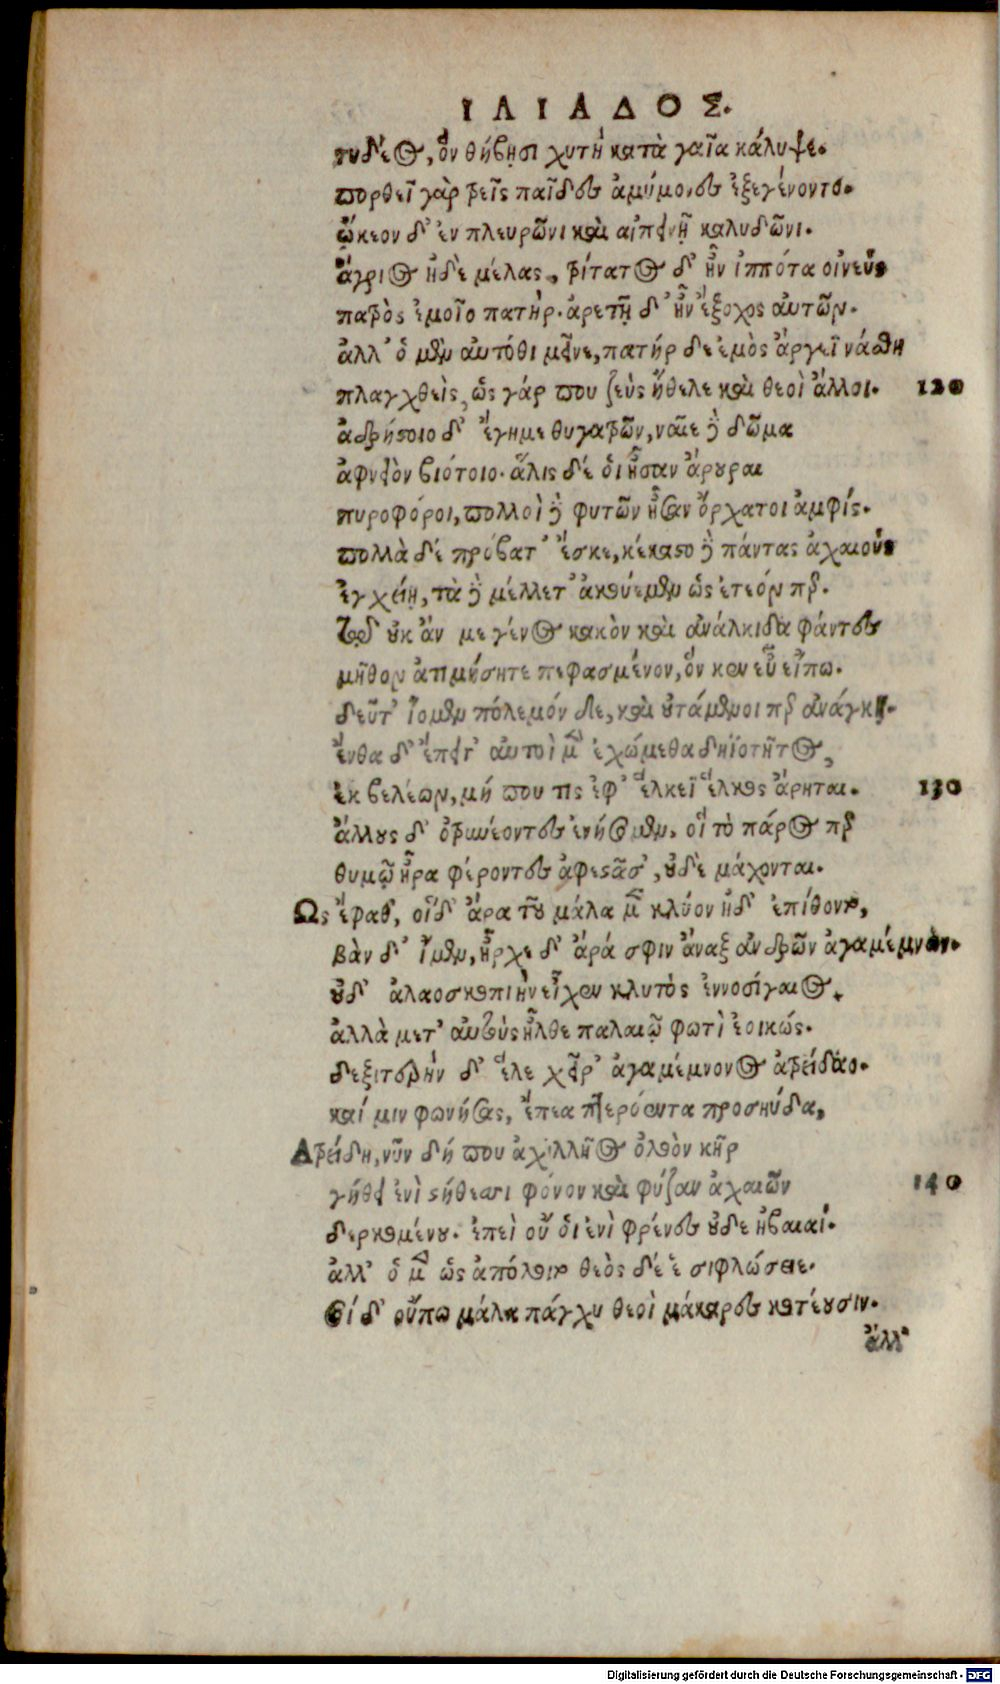 ΙΛΙΑΔΟΣ.
τυδέος, ὃν θήβησι χυτὴ κατὰ γαῖα κάλυψε.
πορθεῖ γὰρ τρεῖς παῖδες ἀμύμονες ἐξεγένοντο.
ᾤκεον δ' ἐν πλευρῶνι καὶ αἰπεινῇ καλυδῶνι.
ἄγριος ἠδὲ μέλας, τρίτατος δ' ἦν ἱππότα οἰνεὺς
πατρὸς ἐμοῖο πατήρ. ἀρετῇ δ' ἦν ἔξοχος αὐτῶν.
ἀλλ' ὁ μὲν αὐτόθι μεῖνε, πατήρ δε ἐμὸς ἄργεϊ νάσθη
πλαγχθεὶς, ὣς γάρ που ζεὺς ἤθελε καὶ θεοὶ ἄλλοι. 120
ἀδρήστοιο δ' ἔγημε θυγατρῶν, ναῖε δὲ δῶμα
ἀφνειὸν βιότοιο. ἅλις δέ οἱ ἦσαν ἄρουραι
πυροφόροι, πολλοὶ δὲ φυτῶν ἦσαν ὄρχατοι ἀμφίς.
πολλὰ δέ πρόβατ' ἔσκε, κέκαστο δὲ πάντας ἀχαιοὺς
ἐγχείῃ, τὰ δὲ μέλλετ' ἀκουέμεν ὡς ἐτεόν περ.
τῷ οὐκ ἄν με γένος κακὸν καὶ ἀνάλκιδα φάντες
μῦθον ἀτιμήσητε πεφασμένον, ὅν κεν εὖ εἴπω.
δεῦτ' ἴομεν πόλεμόν δε, καὶ οὐτάμενοί περ ἀνάγκη.
ἔνθα δ' ἔπειτ' αὐτοὶ μὲν ἐχώμεθα δηϊοτῆτος,
ἐκ βελέων, μή που τις ἐφ' ἕλκεϊ ἕλκος ἄρηται. 130
ἄλλους δ' ὀτρύνοντες ἐνήσομεν, οἳ τὸ πάρος περ
θυμῷ ἦρα φέροντες ἀφεστᾶσ', οὐδὲ μάχονται.
Ὣς ἔφαθ', οἱ δ' ἄρα τοῦ μάλα μὲν κλύον ἠδ' ἐπίθοντο,
βὰν δ' ἴμεν, ἦρχε δ' ἄρά σφιν ἄναξ ἀνδρῶν ἀγαμέμνων.
οὐδ' ἀλαοσκοπιὴν εἶχεν κλυτὸς ἐννοσίγαιος,
ἀλλὰ μετ' αὐτοὺς ἦλθε παλαιῷ φωτὶ ἐοικώς.
δεξιτερὴν δ' ἕλε χεῖρ' ἀγαμέμνονος ἀτρείδαο.
καί μιν φωνήσας, ἔπεα πτερόεντα προσηύδα,
Ἀτρείδη, νῦν δή που ἀχιλλῆος ὀλοὸν κῆρ
γήθει ἐνὶ στήθεσσι φόνον καὶ φύζαν ἀχαιῶν 140
δερκομένου. ἐπεὶ οὔ οἱ ἔνι φρένες οὐδε ἠβαιαί.
ἀλλ' ὁ μὲν ὣς ἀπόλοιτο θεὸς δέ ἑ σιφλώσειε.
Σοὶ δ' οὔπω μάλα πάγχυ θεοὶ μάκαρες κοτέουσιν.
ἀλλ'
Digitalisierung gefördert durch die Deutsche Forschungsgemeinschaft - DFG